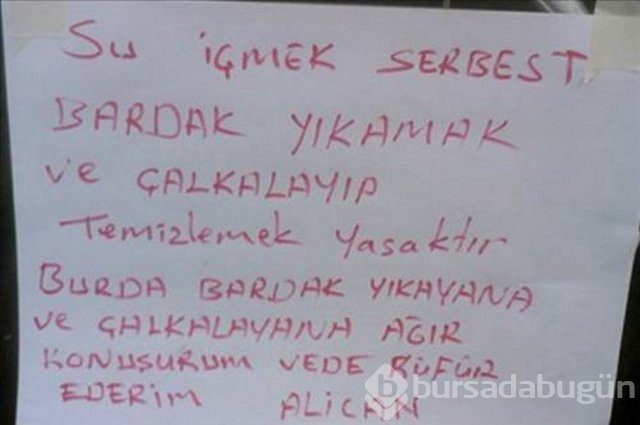 Su İÇMEK SERBEST
BARDAK YIKAMAK
ve ÇALKALAYIP
Temizlemek Yasaktır
BURDA BARDAK YIKAYANA
ve ÇALKALAYANA AĞIR
KONUŞURUM VEDE KÜFÜR
EDERİM ALİCAN
bursadabugün